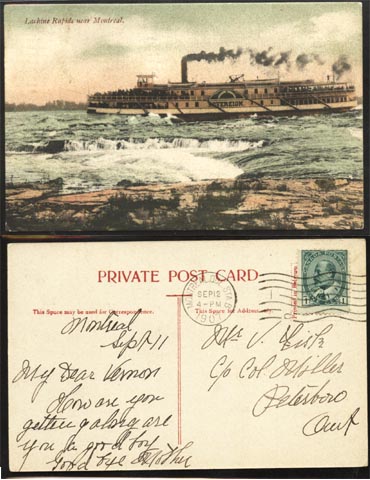 Lachine Rapids near Montreal.
SOVEREIGN
PRIVATE POST CARD
This Space may be used for Correspondence.
This Space for Address only.
MONTREAL
SEP 12
4-PM
1907
CANADA POSTAGE
1
Montreal
Sept 11
My Dear Vernon
How are you
getting along are
you a good boy
Good bye Mother
Mr V.
c/o Col Miller
Peterboro
Ont